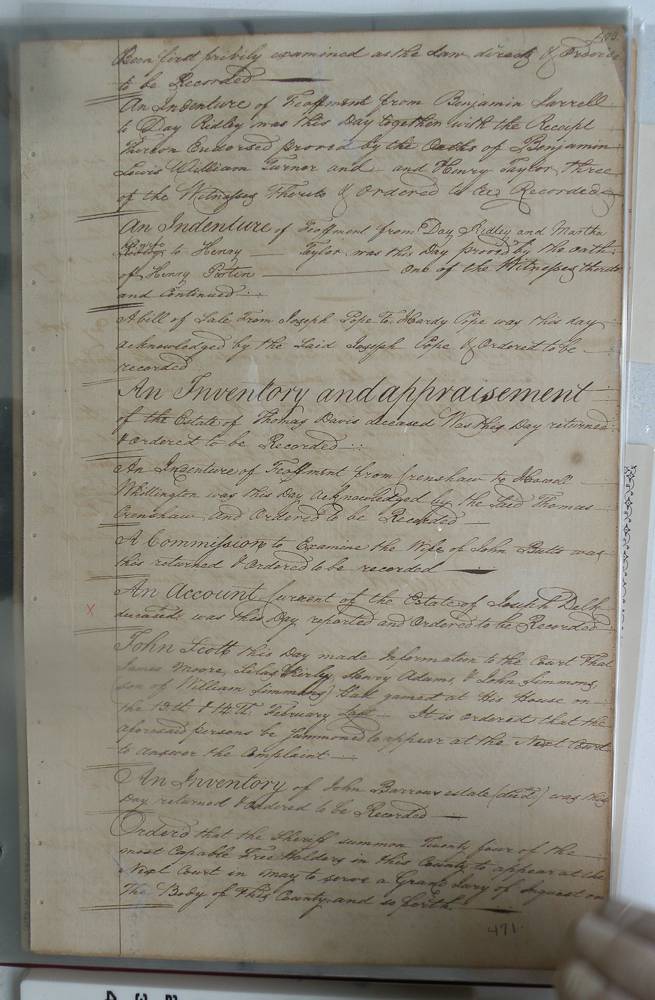 Been first privily examined as the Law directs & Ordered
to be Recorded
An Indenture of Feoffment from Benjamin Harrell
to Day Ridley was this Day together with the Receipt
thereon Endorsed proved by the Oaths of Benjamin
Lewis William Turner and and Henry Taylor three
of the Witnesses Thereto & Ordered to be Recorded
An Indenture of Feoffment from Day Ridley and Martha
to Henry Taylor was this Day proved by the oath
of Henry One of the Witnesses thereto
and Continued
A bill of Sale From Joseph Pope To Hardy Pope was this day
acknowledged by the Said Joseph Pope & Ordered to be
recorded
An Inventory and appraisement
of the Estate of Thomas Davis deceased Was this Day returned
& ordered to be Recorded
An Indenture of Feoffment from Crenshaw to Howell
Whittington was this Day Acknowledged by the said Thomas
Crenshaw and Ordered to be Recorded
A Commission to Examine the Wife of John Butts was
this returned & Ordered to be recorded
An Account Current of the Estate of Joseph Delk
deceased was this Day reported and Ordered to be Recorded
John Scott this Day made Information to the Court That
James Moore, Silas Kirby, Henry Adams, & John Simmons,
(son of William Simmons) had gamed at His House on
the 13th & 14th February Last It is ordered that the
aforesaid persons be Summoned to appear at the Next Court
to answer the Complaint
An Inventory of John Barrows estate (decd) was this
Day returned & Ordered to be Recorded
Orderd that the Sheriff summon Twenty four of the
most Capable Free Holders in this County to appear at the
Next Court in may to serve a Grand Jury of Inquest on
The Body of this County and so forth
471